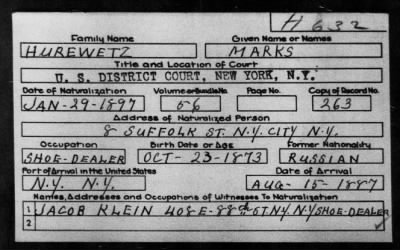 H 632
Family Name Given Name or Names
HUREWETZ MARKS
Title and Location of Court
U. S. DISTRICT COURT, NEW YORK, N.Y.
Date of Naturalization Volume or Bundle No. Page No. Copy of Record No.
JAN-29-1897 56 263
Address of Naturalized Person
8 SUFFOLK ST. N.Y. CITY N.Y.
Occupation Birth Date or Age Former Nationality
SHOE-DEALER OCT-23-1873 RUSSIAN
Port of Arrival in the United States Date of Arrival
N.Y. N.Y. AUG-15-1887
Names, Addresses and Occupations of Witnesses To Naturalization
1 JACOB KLEIN 408 E-88th ST. N.Y. N.Y. SHOE-DEALER
2